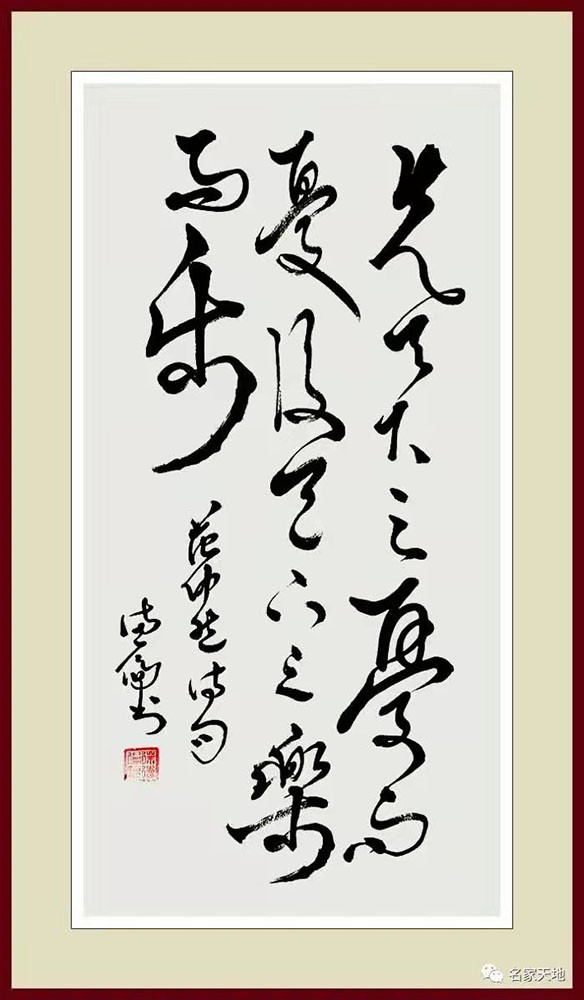 先天下之憂而
憂後天下之樂
而樂
范仲淹诗句
名家天地